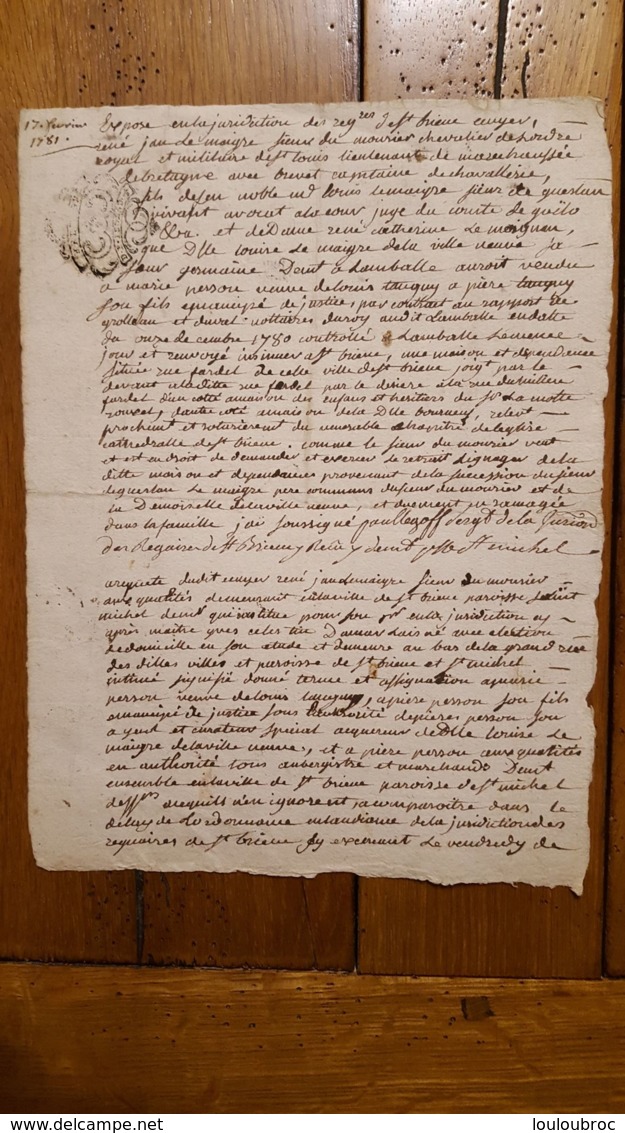 17 fevrier
1781.
Expose en la juridiction des reg.res de st brieuc ecuyer,
rené jan Le maigre sieur du mourier chevalier de Lordre
royal et militaire de st Louis Lieutenant de marechaussée
de bretagne avec brevet capitaine de chavallerie,
fils de feu noble m Louis Lemaigre sieur de querlan
vivant avocat a la cour juge du comté de
et de Dame rené catherine Le
que Dlle Louise Le maigre de la ville neuve sa
sœur germaine Demt a Lamballe auroit vendu
a marie person veuve de Louis tanguy a piere tanguy
son fils emancipé de justice, par contrat au rapport de
grolleau et duval nottaires du roy audit Lamballe en datte
du onze decembre 1780 controllé a Lamballe Le meme
jour et renvoyé insinuer a st brieuc, une maison et dependence
située rue fardel de cette ville de st brieuc joigt par le
devant a laditte rue fardel par le deriere a la rue du
fardel d'un coté a maison des enfans et heritiers du Sr La motte
d'autre coté a maison de la Dlle relevt
prochement et roturierement du venerable chapitre de leglise
cathedralle de st brieuc. comme le sieur du mourier veut
et est en droit de demander et exercer le retrait Lignager de la
ditte maison et dependances provenant de la succession du sieur
de querlan Le maigre pere commun du sieur du mourier et de
la Demoiselle de la ville neuve, et duement ramagée
dans la famille j'ai soussigné sergt de la
Des Regaires de St Brieuc y demt St michel
a requete dudit ecuyer rené jan le maigre sieur du mourier
aux qualités demeurant en la ville de st brieuc paroisse saint
michel qui institue pour son pr en la juridiction cy
après maitre yves celestin Damar Laisné avec election
de domicille en son etude et demeure au bas de la grand rue
des dittes villes et paroisse de st brieuc et st michel
intimé signifié donné terme et assignation a marie
person veuve de Louis tanguy, a piere person son fils
emancipé de justice sous Lauthorité de pieres person son
ayeul et curateur special acquereur de Dlle Louise Le
maigre de la ville neuve, et a piere person aux qualités
en authorité tous aubergistre et marchands Demt
ensemble en la ville de st brieuc paroisse de st michel
a ce qu'ils n'en ignorent a comparoitre dans le
delay de Lordonnance en Laudiance de la juridiction des
regaires de st brieuc sy exercant Le vendredy de
© delcampe.net
louloubroc